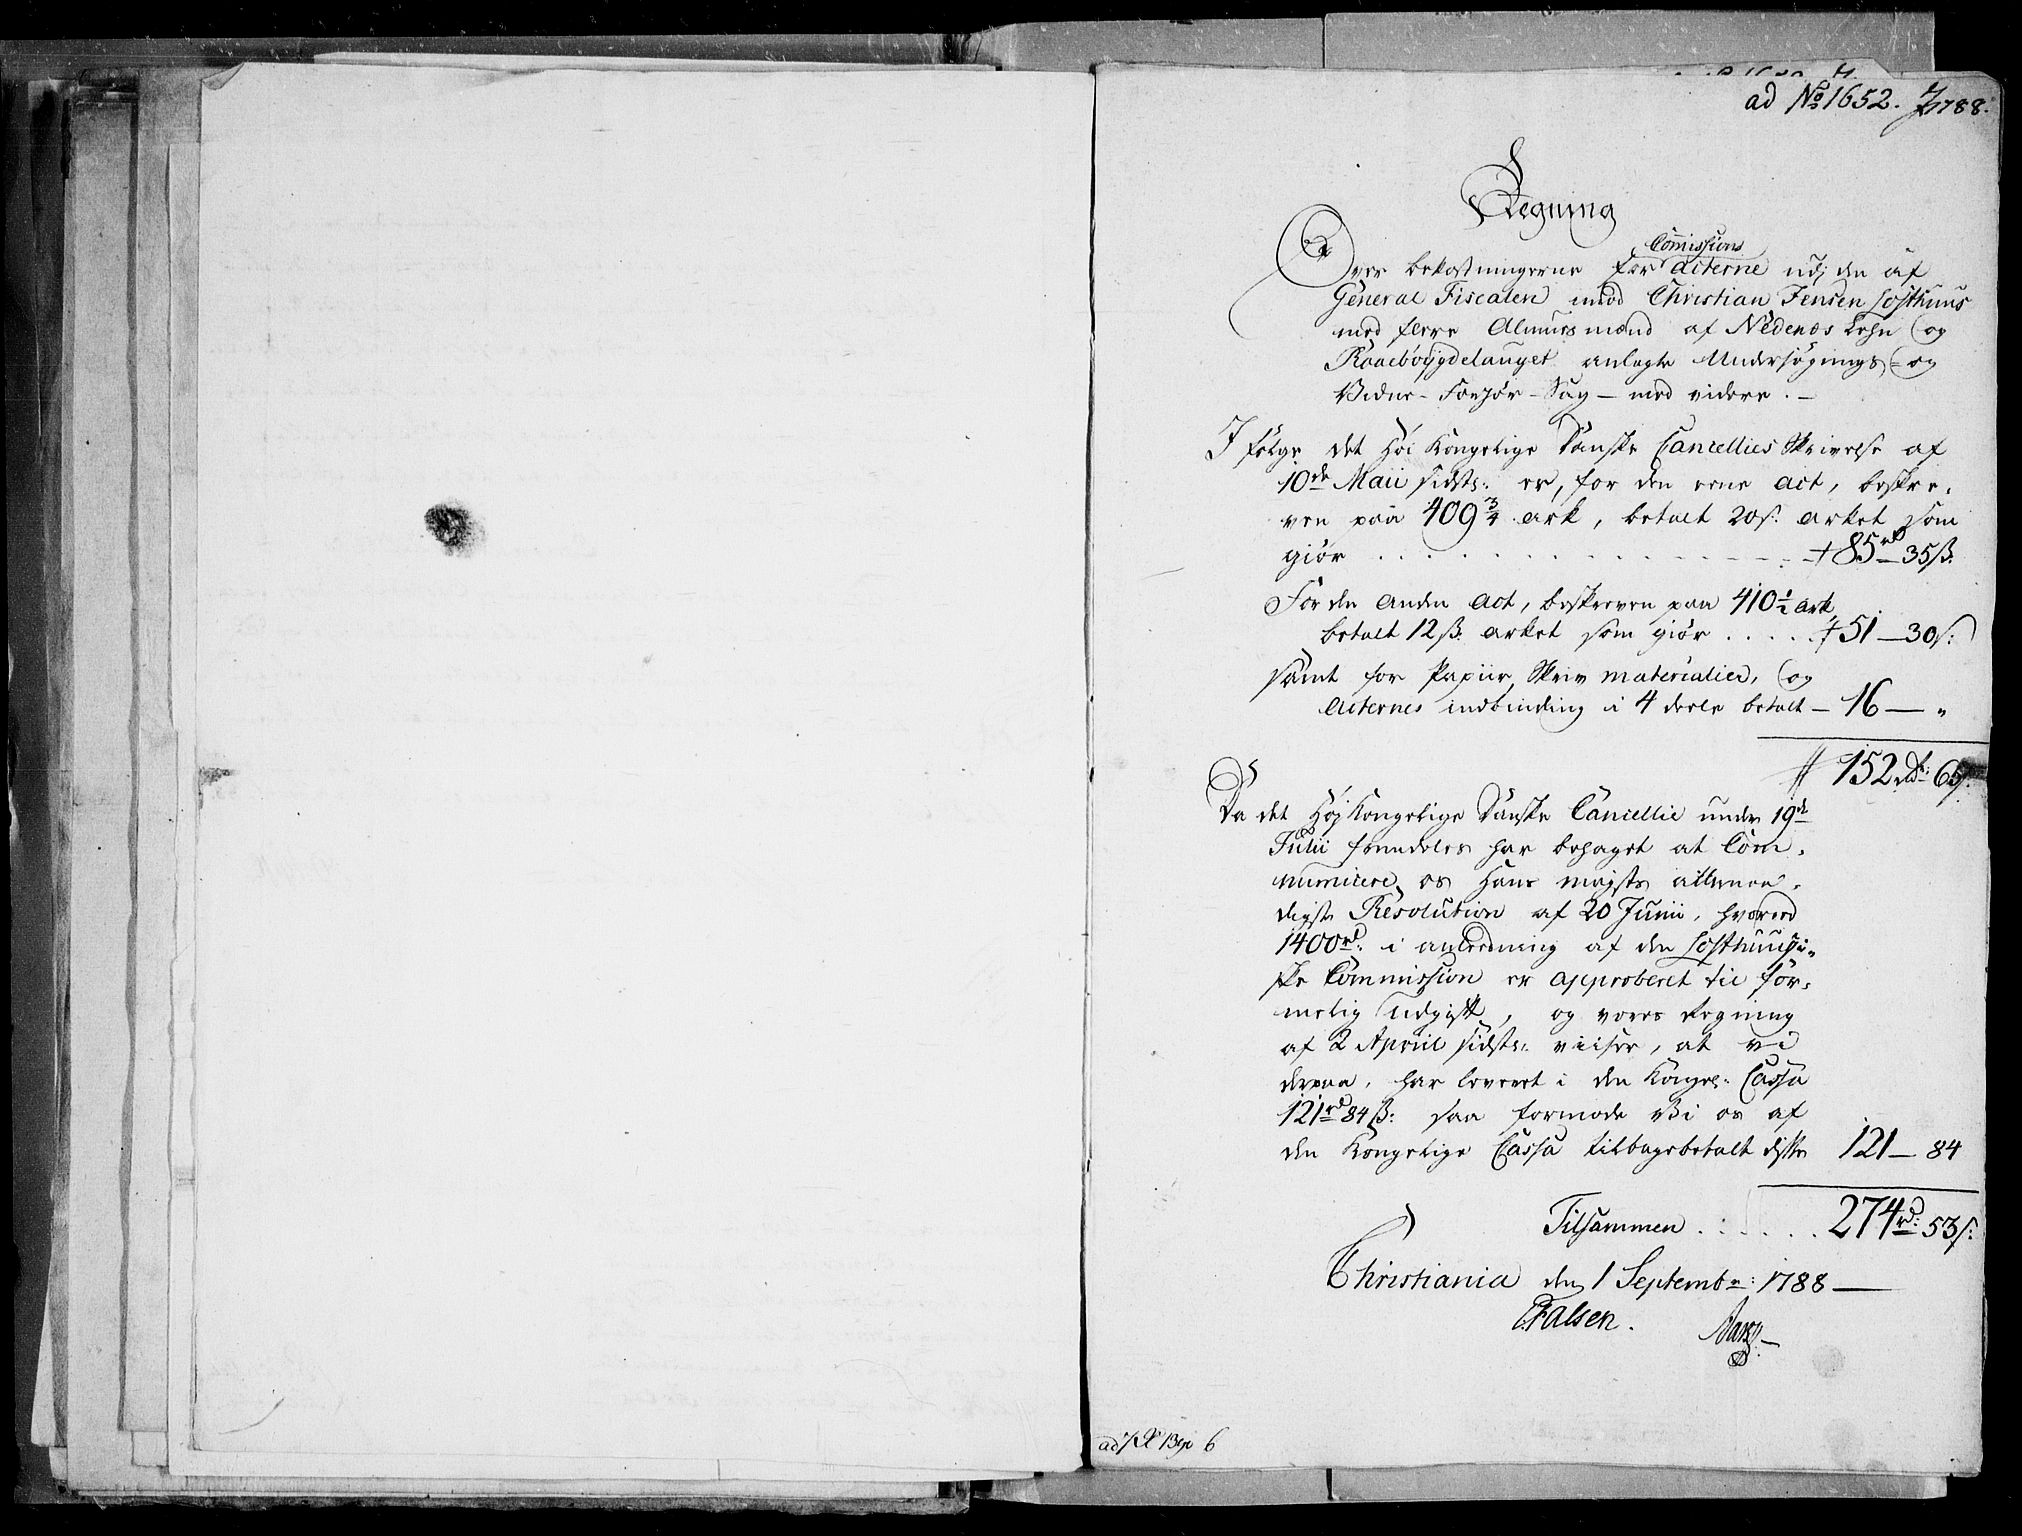 ad No 1652. 1788.
Regning
Over bekostningerne for Comissions acterne udj den af
General Fiscalen imod Christian Jensen Losthuus
med flere Almues mænd af Nedenes Lehn og
Raaebøygdelauget anlagte Undersøgnings- og
Vidne-Forhør-Sag - med videre. -
I følge det Høi Kongelige Danske Cancellies Skrivelse af
10de Maii sidstl: er, for den eene act, beskre-
ven paa 409 3/4 ark, betalt 20 s: arket som
giør . . . . . . . . . . 85 rd 35 ß.
For den anden act, beskreven paa 410 1/2 ark,
betalt 12 ß. arket som giør . . . . 51 - 30 s:
samt for Papiir, Skriv materialier, og
acternes indbinding i 4 deele betalt - 16 - "
152 rd: 65 s.
Da det Høj Kongelige Danske Cancellie under 19de
Julii sæudeles har behaget at Com-
municere os Hans Majsts allernaa-
digste Resolution af 20 Junii, hvorved
1400 rd: i anledning af den Losthuusi-
ske Commission er approberet til for-
melig udgivt, og vores Regning
af 2 April sidstl: viiser, at vi
derpaa, har leveret i den Kongel: Cassa
121 rd 84 ß: saa formode Vi os af
den Kongelige Cassa tilbagebetalt disse 121 - 84
Tilsammen . . . . . . 274 rd: 53 s:
Christiania den 1 Septembr: 1788 -
Falsen.